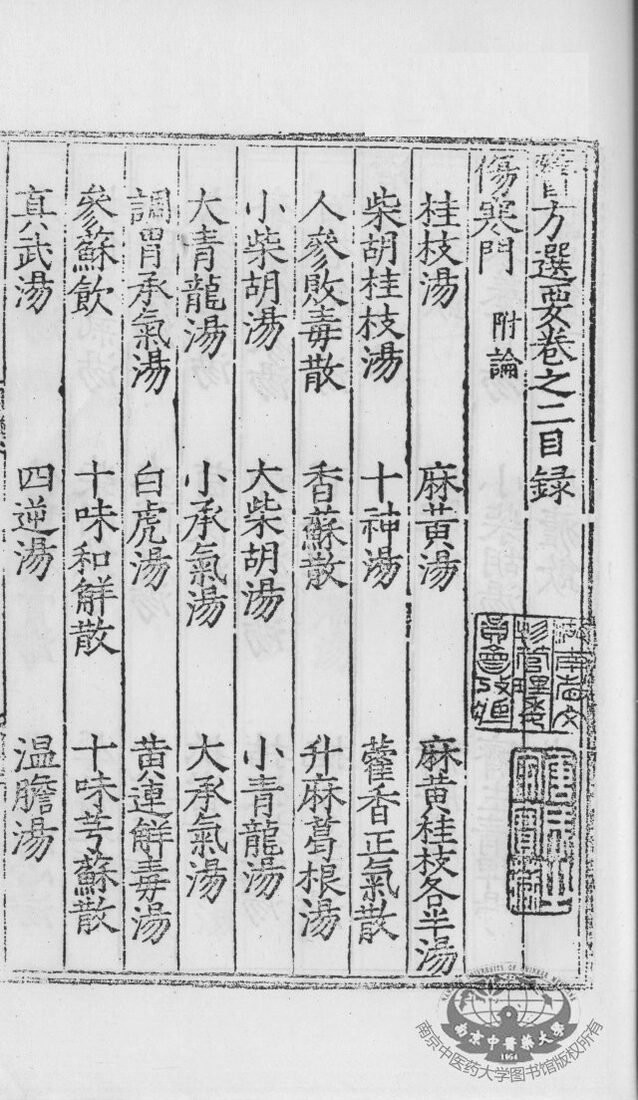 醫方選要卷之二目錄
傷寒門 附論
桂枝湯 麻黃湯 麻黃桂枝各半湯
柴胡桂枝湯 十神湯 藿香正氣散
人參敗毒散 香蘇散 升麻葛根湯
小柴胡湯 大柴胡湯 小青龍湯
大青龍湯 小承氣湯 大承氣湯
調胃承氣湯 白虎湯 黃連解毒湯
參蘇飲 十味和解散 十味芎蘇散
真武湯 四逆湯 温膽湯
南京中醫藥大學
1954
南京中医药大学图书馆版权所有